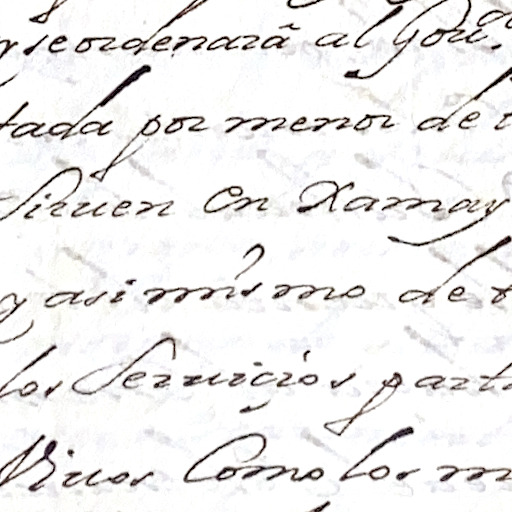 y se ordenarâ al Gou.ᵒʳ
tada por menor de
Siruen en Xamay
y asi mismo de t
los Seruiçios parti
Viuos Como los m